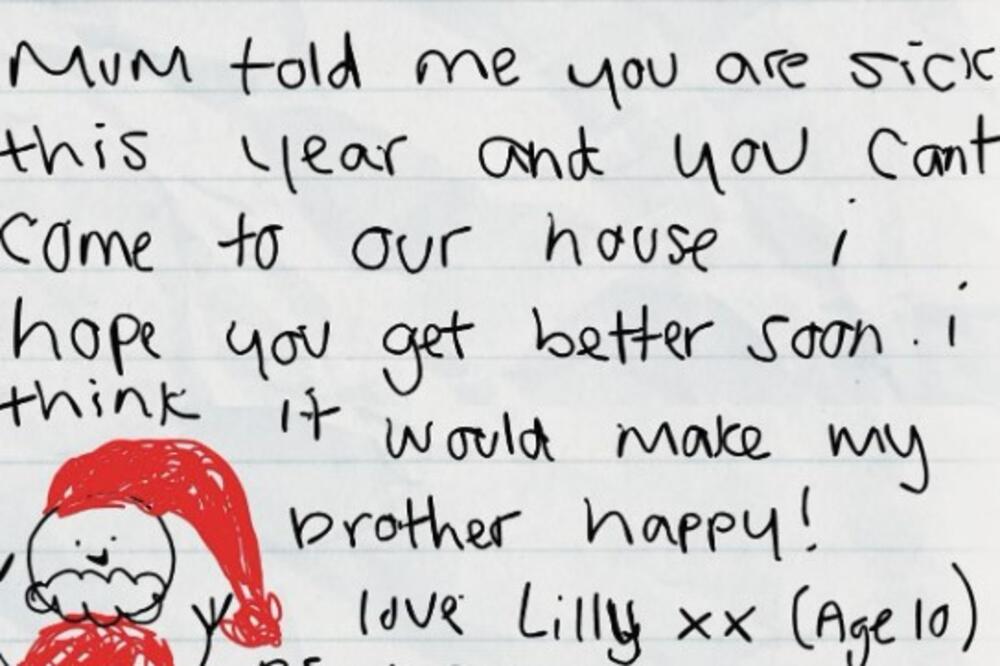 Mum told me you are sick
this year and you cant
come to our house i
hope you get better soon. i
think it would make my
brother happy!
love Lilly xx (Age 10)